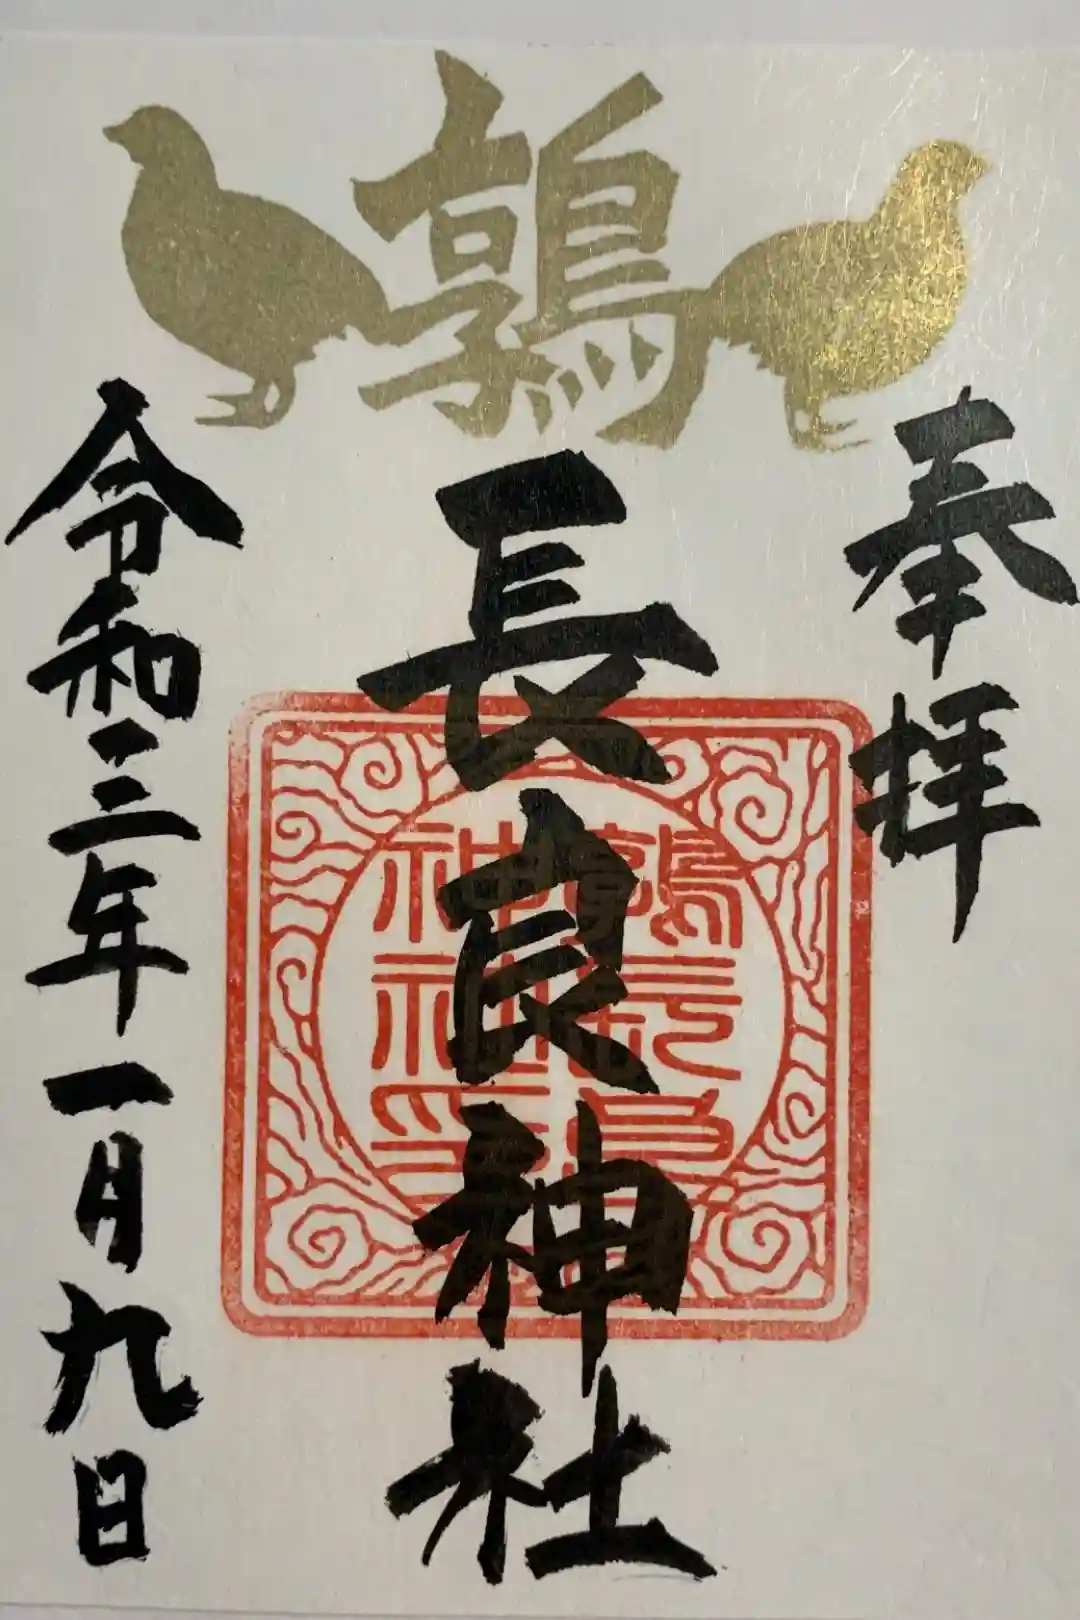 鶉
奉拝
長良神社
令和三年一月九日
鶉長良
神社印